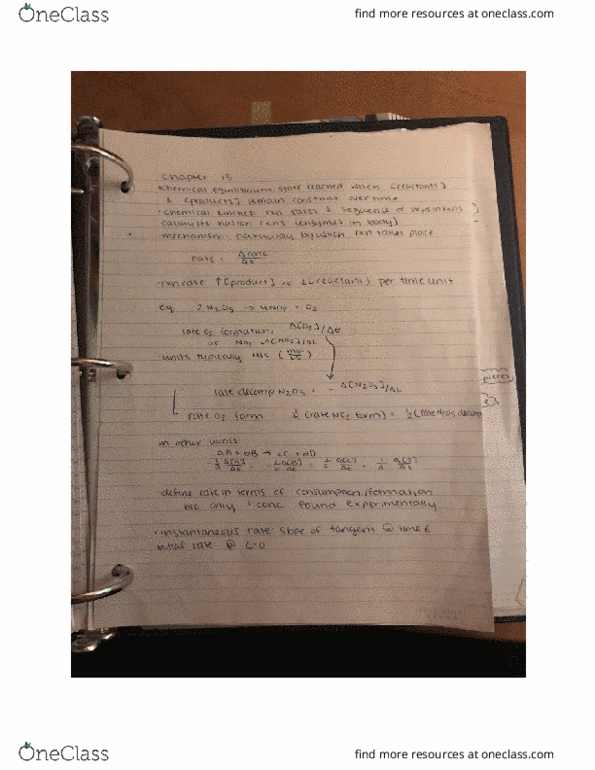 OneClass
find more resources at oneclass.com
Chapter 13
·chemical equilibrium: state reached when [reactants]
& [products] remain constant over time
·chemical kinetics: rxn rates & sequence of
catalysts hasten rxns (enzymes in body)
·mechanism: pathway by which rxn takes place
rate = Δconc / Δt
·rxn rate ↑[product] or ↓[reactant] per time unit
eg. 2 N2O5 → 4NO2 + O2
rate O2 formation, Δ[O2]/Δt
or NO2
·units typically M/s (mol/L·s)
rate decomp N2O5 = - Δ[N2O5]/Δt
pieces
rate O2 form (rate NO2 form) = 1/2 (rate N2O5 decomp
in other words:
aA + bB → cC + dD
-1/a Δ[A]/Δt = -1/b Δ[B]/Δt = 1/c Δ[C]/Δt = 1/d Δ[D]/Δt
·define rate in terms of consumption/formation
bic only 1 conc. found experimentally
·instantaneous rate: slope of tangent @ time t
initial rate @ t=0
OneClass
find more resources at oneclass.com